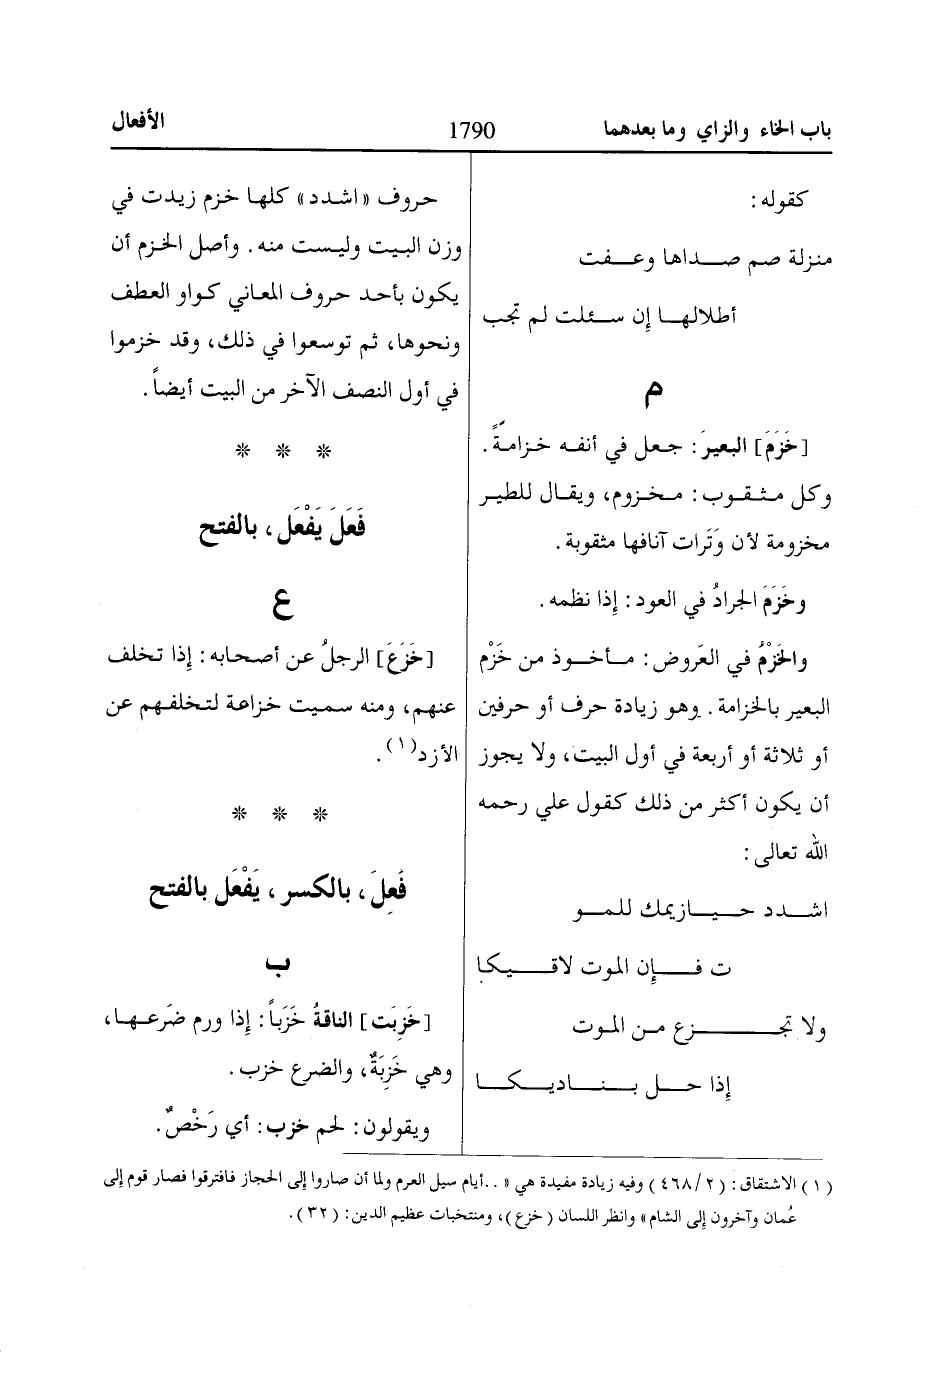 باب الخاء والزاي وما بعدهما
1790
الأفعال
كقوله:
منزلة صم صداها وعفت
أطلالها إن سئلت لم تجب
م
[خَزَمَ] البعيرَ: جعل في أنفه خزامةً.
وكل مثقوب: مخزوم، ويقال للطير
مخزومة لأن وَتَرات آنافها مثقوبة.
وخَزَمَ الجرادُ في العود: إذا نظمه.
والخَزْمُ في العَروض: مأخوذ من خَزْم
البعير بالخزامة. وهو زيادة حرف أو حرفين
أو ثلاثة أو أربعة في أول البيت، ولا يجوز
أن يكون أكثر من ذلك كقول علي رحمه
الله تعالى:
اشدد حيازيمك للمو
ت فإن الموت لاقيكا
ولا تجزع من الموت
إذا حل بناديكا
حروف «اشدد» كلها خزم زيدت في
وزن البيت وليست منه. وأصل الخزم أن
يكون بأحد حروف المعاني كواو العطف
ونحوها، ثم توسعوا في ذلك، وقد خزموا
في أول النصف الآخر من البيت أيضاً.
* * *
فَعَلَ يَفْعَل، بالفتح
ع
[خَزَعَ] الرجلُ عن أصحابه: إذا تخلف
عنهم، ومنه سميت خزاعة لتخلفهم عن
الأزد(١).
* * *
فَعِلَ، بالكسر، يَفْعَل بالفتح
ب
[خَزِبَت] الناقةُ خَزَباً: إذا ورم ضَرعها،
وهي خَزِبَةٌ، والضرع خزب.
ويقولون: لحم خزب: أي رَخْصٌ.
(١) الاشتقاق: (٤٦٨/٢) وفيه زيادة مفيدة هي «..أيام سيل العرم ولما أن صاروا إلى الحجاز فافترقوا فصار قوم إلى
عُمان وآخرون إلى الشام» وانظر اللسان (خزع)، ومنتخبات عظيم الدين: (٣٢).